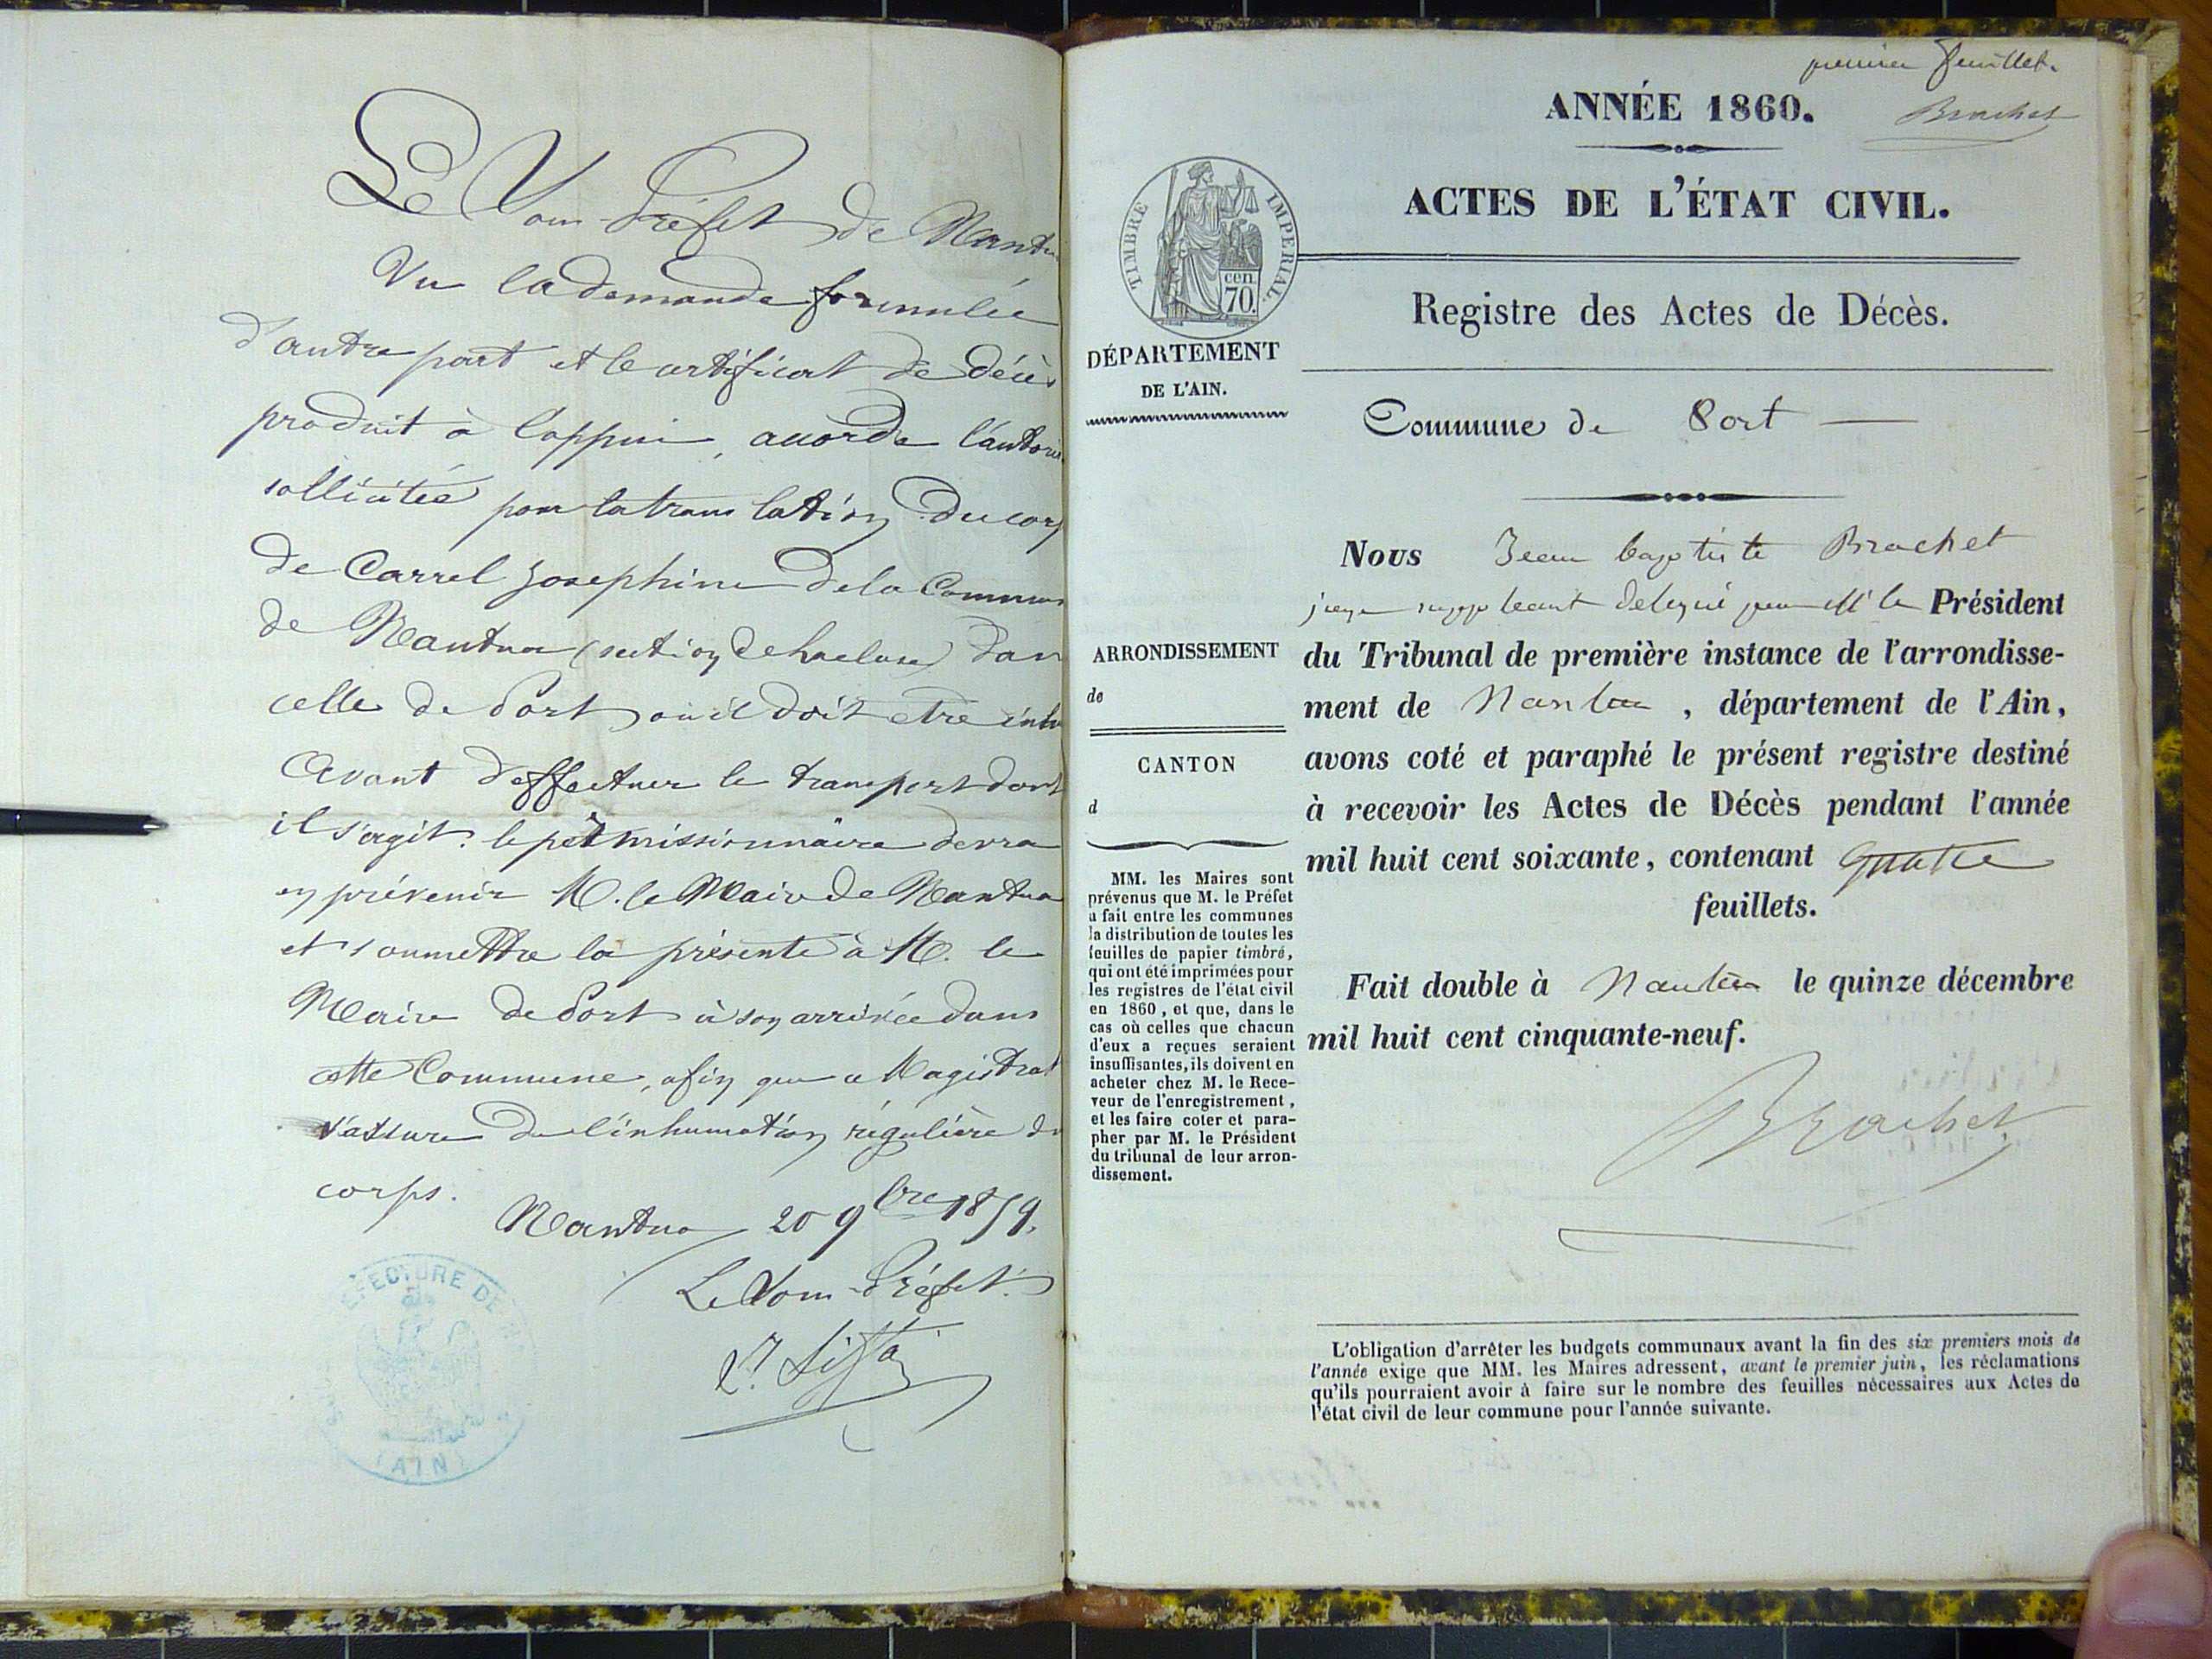 Le Sous-Préfet de Nantu
Vu la demande formulée
d'autre part et le certificat de décès
produit à l'appui, accorde l'autoris
sollicitée pour la translation du corps
de Carrel Josephine de la Commun
de Nantua (section de ) dan
celle de Port où il doit etre inhu
Avant d'effectuer le transport dont
il s'agit, le pétmissionnaire devra
en prévenir M. le Maire de Nantua
et soumettre la présente à M. le
Maire de Port à son arrivée dans
cette Commune, afin que ce Magistrat
s'assure de l'inhumation régulière du
corps.
Nantua 20 9bre 1859.
Le Sous-Préfet.
ECTURE DE
(AIN)
premier feuillet.
Brachet
ANNÉE 1860.
ACTES DE L'ÉTAT CIVIL.
TIMBRE IMPERIAL.
cen.
70.
Registre des Actes de Décès.
DÉPARTEMENT
DE L'AIN.
Commune de Port
ARRONDISSEMENT
de
CANTON
d
MM. les Maires sont
prévenus que M. le Préfet
a fait entre les communes
la distribution de toutes les
feuilles de papier timbré,
qui ont été imprimées pour
les registres de l'état civil
en 1860, et que, dans le
cas où celles que chacun
d'eux a reçues seraient
insuffisantes, ils doivent en
acheter chez M. le Rece-
veur de l'enregistrement,
et les faire coter et para-
pher par M. le Président
du tribunal de leur arron-
dissement.
Nous Jean baptiste Brachet
juge suppleant delegué par Mr le Président
du Tribunal de première instance de l'arrondisse-
ment de Nantua, département de l'Ain,
avons coté et paraphé le présent registre destiné
à recevoir les Actes de Décès pendant l'année
mil huit cent soixante, contenant Quatre
feuillets.
Fait double à Nantua le quinze décembre
mil huit cent cinquante-neuf.
Brachet
L'obligation d'arrêter les budgets communaux avant la fin des six premiers mois de
l'année exige que MM. les Maires adressent, avant le premier juin, les réclamations
qu'ils pourraient avoir à faire sur le nombre des feuilles nécessaires aux Actes de
l'état civil de leur commune pour l'année suivante.